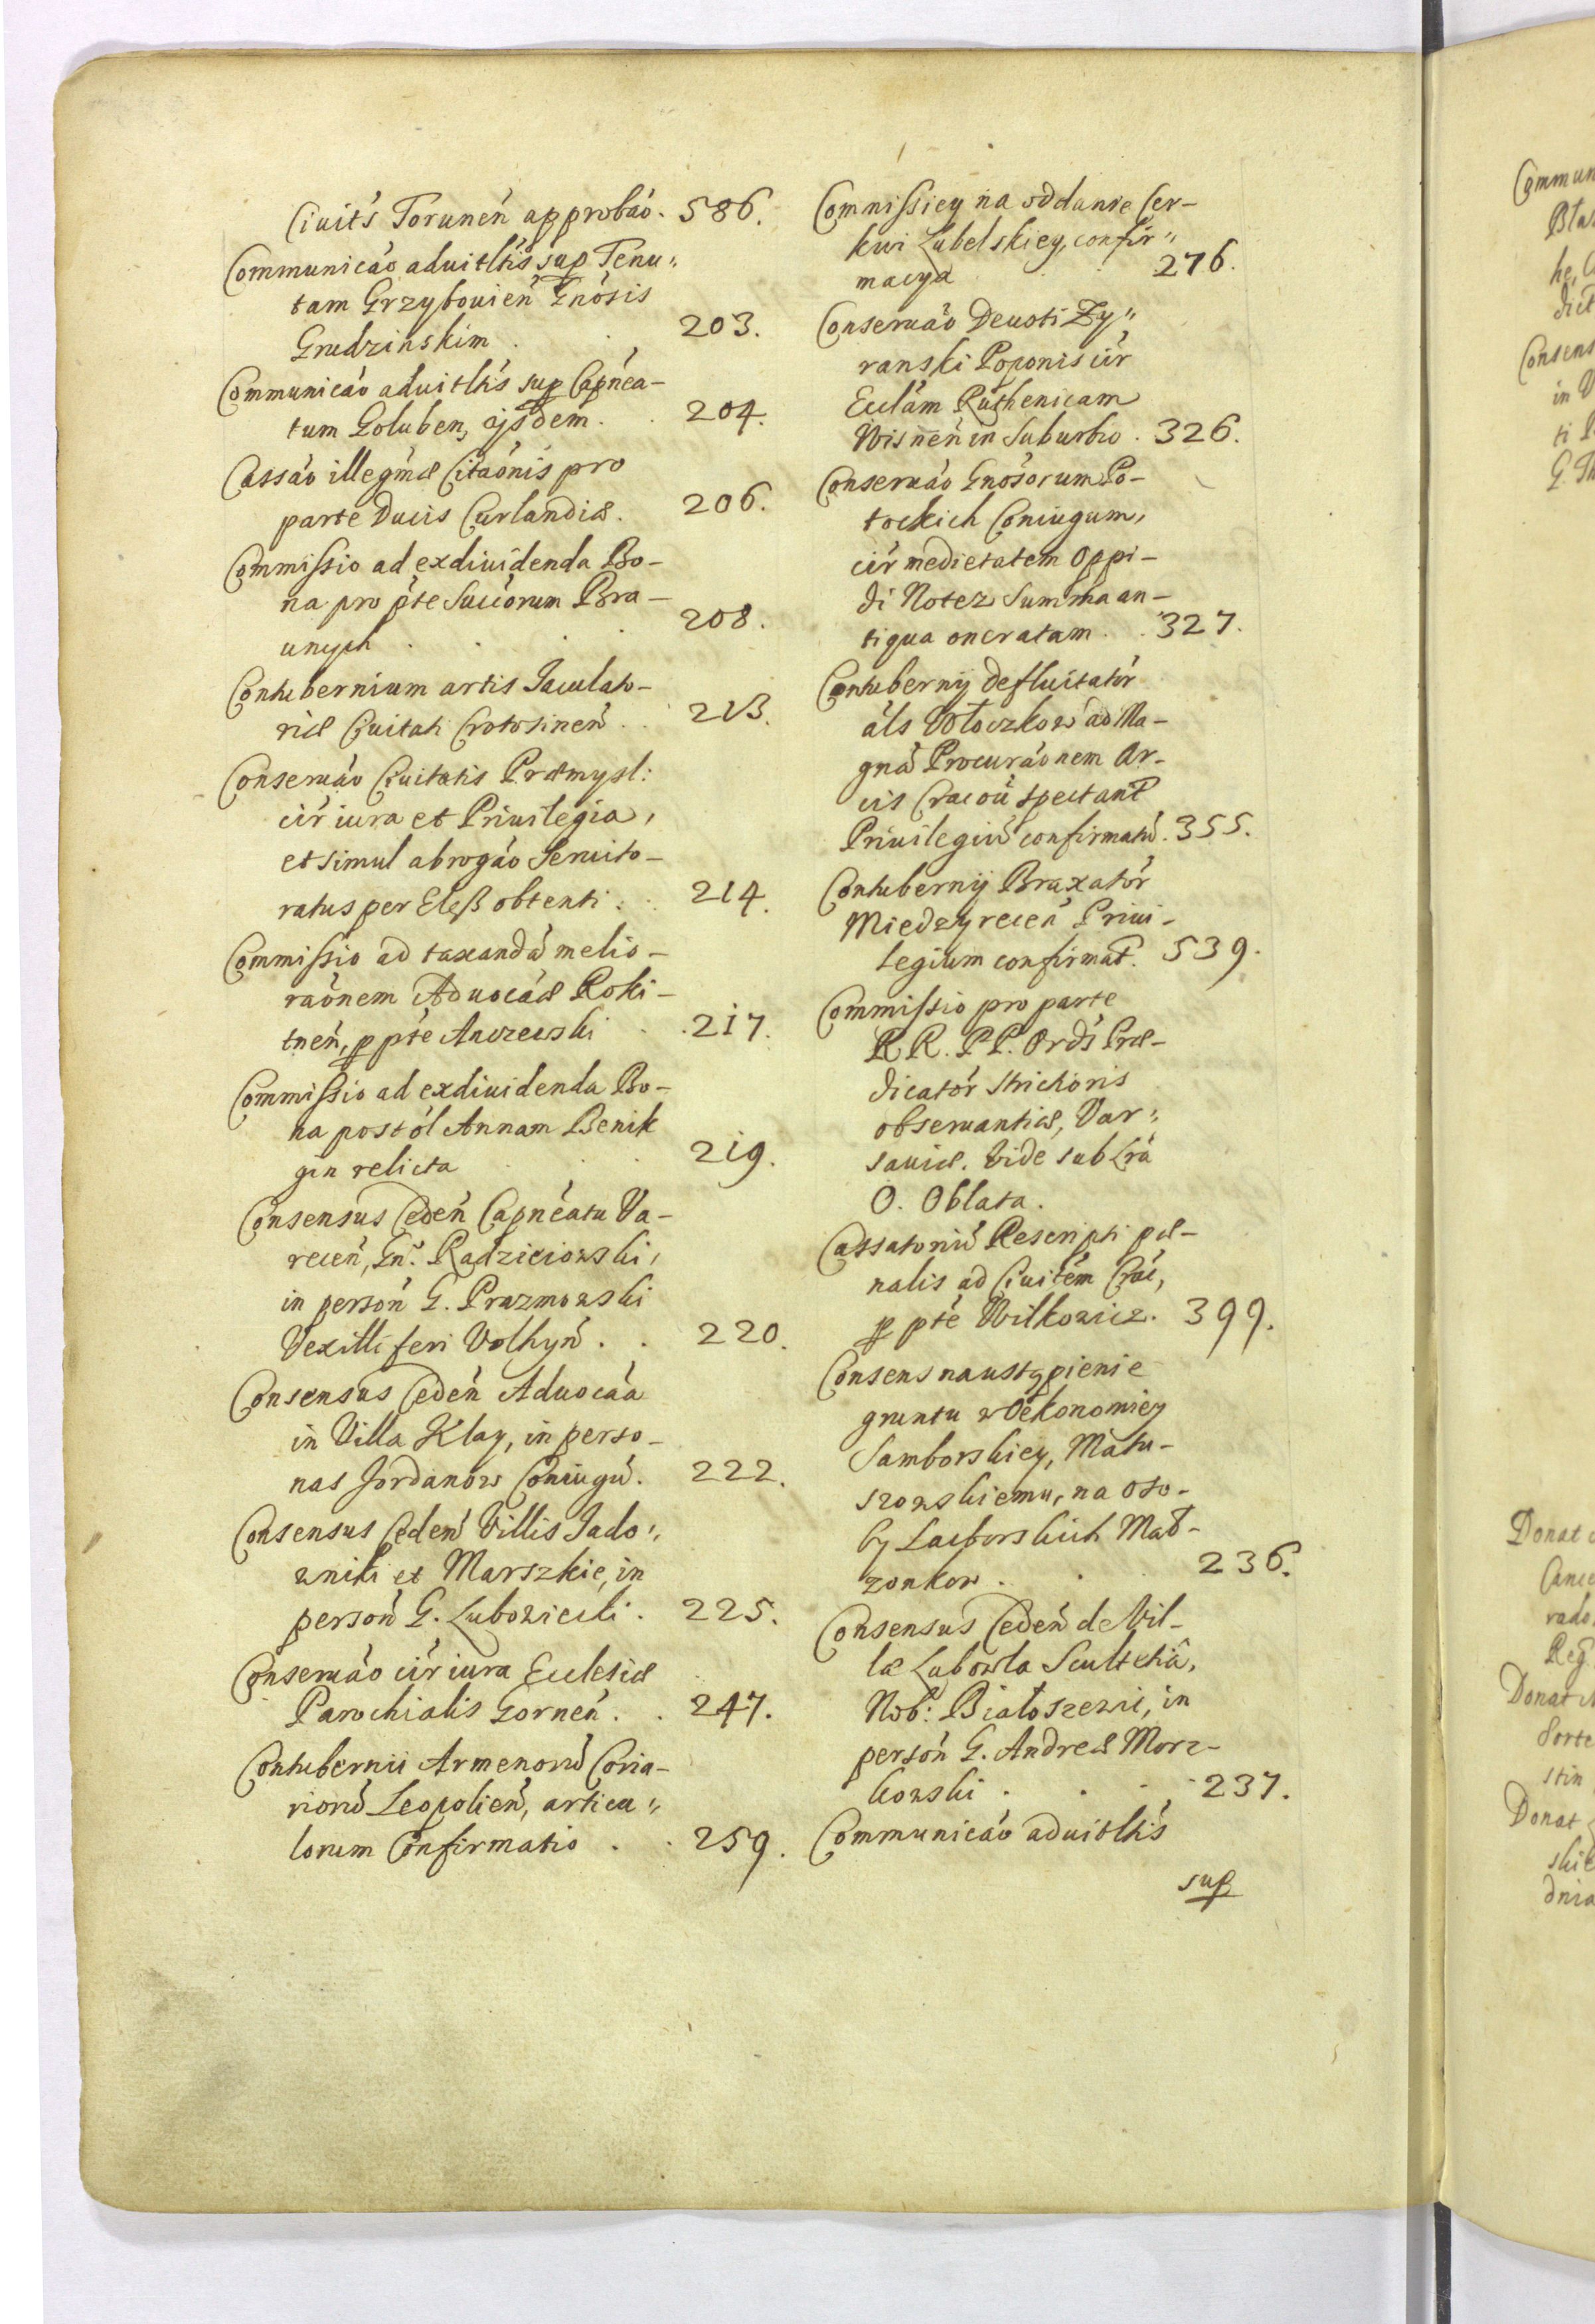 Ciuit́s Toruneń approbáo. 586.
Communicáo aduitlt́is sup Tenu„
tam Grzybouień Gnósis
Grudzinskim . . 203.
Communicáo aduitlt́is sup Capńea-
tum Goluben, ejsdem . . 204.
Cassáo illegmæ Citaónis pro
parte Ducis Curlandiæ. 206.
Commissio ad exdiuidenda Bo-
na pro pte Succórum Bra-
unych . . . 208.
Contubernium artis Iaculato-
riæ Ciuitati Crotosineń . . 213.
Conseruáo Ciuitatis Præmysl:
cir iura et Priuilegia,
et simul abrogáo Seruito-
ratus per Eleß obtenti . . 214.
Commissio ad taxandá melio-
raónem Aduocáæ Roki-
tneń, p pte Anczewski . . 217.
Commissio ad exdiuidenda Bo-
na post ól Annam Benik
gin relicta . . . 219.
Consensus Cedeń Capńeatu Va-
receń, Gn. Radzieiowski,
in persoń G. Prazmowski
Vexilliferi Volhyń . . 220.
Consensus Cedeń Aduocáa
in Villa Klay, in perso-
nas Jordanow Coniugú. 222.
Consensus Cedeń Villis Iado„
wniki et Marszkie, in
persoń G. Lubowiecki . 225.
Conseruáo cir iura Ecclesiæ
Parochialis Gorneń . . 247.
Contubernii Armenorú Coria-
riorú Leopolień, articu„
lorum Confirmatio . . 259.
Commissiey na oddanie Cer-
kwi Lubelskiey, confir„
macya . . 276.
Conseruáo Deuoti Zy„
ranski Poponis cir
Ecclám Ruthenicam
Wisneń in Suburbio . 326.
Conseruáo Gnósorum Po-
tockich Coniugum,
cir medietatem Oppi-
di Notez Summa an-
tiqua oneratam . . 327.
Contubernij Defluitatór
áls Włoczkow ad Ma-
gná Procuráonem Ar-
cis Cracoú spectant
Priuilegiú confirmatú. 355.
Contubernij Braxatór
Miedzyreceń Priui-
legium confirmat. 539.
Commissio pro parte
RR. PP. Ordś Præ-
dicatór strictioris
obseruantiæ, Var„
sauiæ. Vide sub Lrá
O. Oblata.
Cassatoriú Rescripti pæ-
nalis ad Ciuitém Crac,
p pte Wilkowicz. 399.
Consens na ustąpienie
gruntu w Oekonomiey
Samborskiey, Matu-
szowskiemu, na oso-
by Laiborskich Mał-
zonkow . . 236.
Consensus Cedeń de Vil-
la Lubowla Scultetiá,
Nob: Białoszewic, in
persoń G. Andreæ Morz-
kowski . . . 237.
Communicáo aduitlt́is
sup